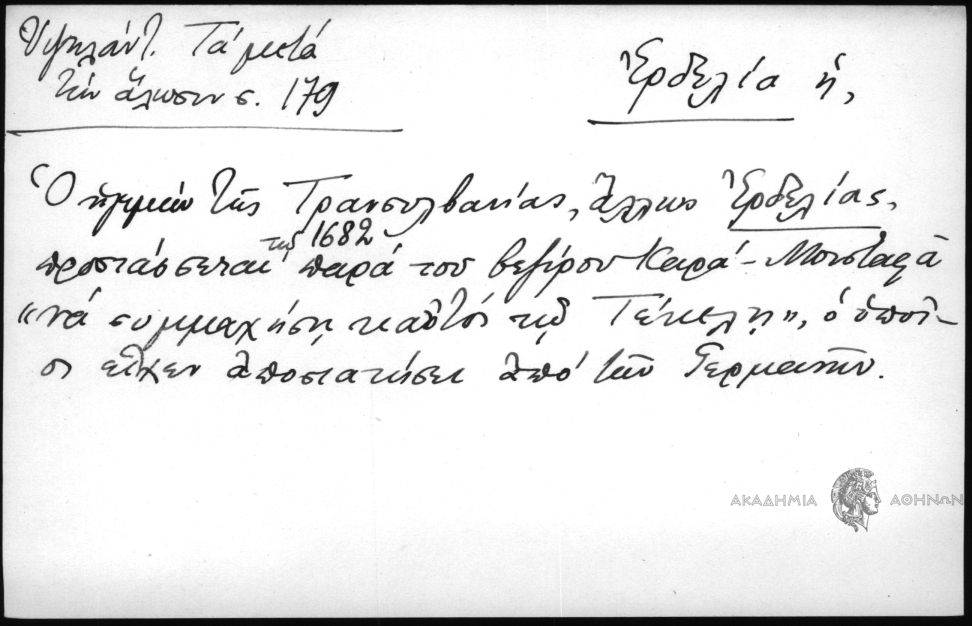 Ὑψηλάντ. Τά μετά
τήν ἅλωσιν σ. 179
Ἐρδελία ἡ,
Ὁ ἡγεμών τῆς Τρανσυλβανίας, ἄλλως Ἐρδελίας,
προστάσσεται τῷ 1682 παρά του βεζίρου Καρά-Μουσταφᾶ
"νά συμμαχήσῃ καὐτός τῷ Τέκελῃ", ὁ ὁποῖ-
ος εἶχεν ἀποστατήσει ἀπό τῶν Γερμανῶν.
ΑΚΑΔΗΜΙΑ ΑΘΗΝΩΝ